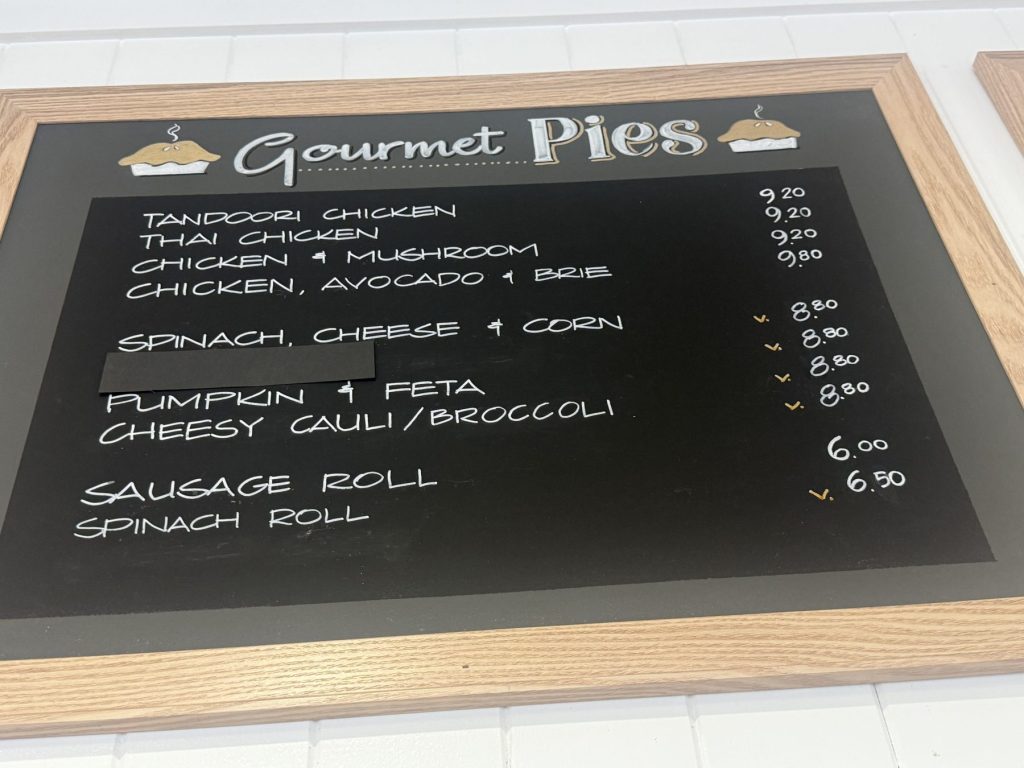 Gourmet Pies
TANDOORI CHICKEN 9.20
THAI CHICKEN 9.20
CHICKEN & MUSHROOM 9.20
CHICKEN, AVOCADO & BRIE 9.80
SPINACH, CHEESE & CORN V. 8.80
V. 8.80
PUMPKIN & FETA V. 8.80
CHEESY CAULI/BROCCOLI V. 8.80
SAUSAGE ROLL 6.00
SPINACH ROLL V. 6.50